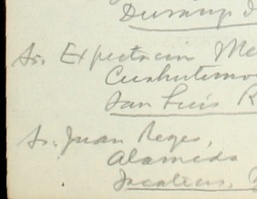 Durango, D
Sr. Expectacin Me
Cuahutemo
San Luis R
Sr. Juan Reyes,
Alameda
Zacatecas,